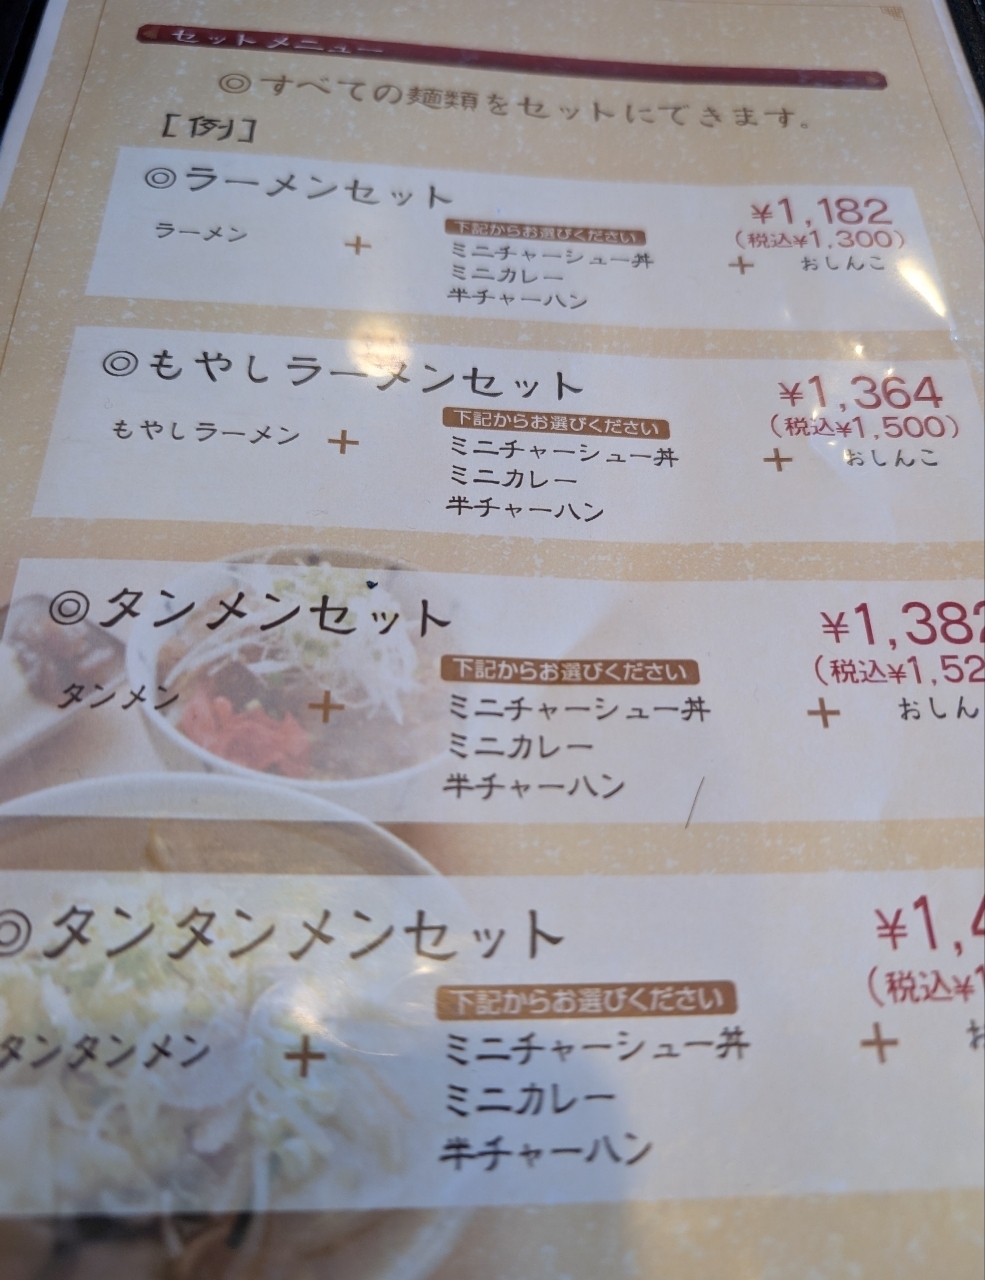 セットメニュー
◎すべての麺類をセットにてきます。
[例]
◎ラーメンセット
¥1,182
(税込¥1,300)
ラーメン
+
下記からお選びください
ミニチャーシュー丼
ミニカレー
半チャーハン
+ おしんこ
◎もやしラーメンセット
¥1,364
(税込¥1,500)
もやしラーメン
+
下記からお選びください
ミニチャーシュー丼
ミニカレー
半チャーハン
+ おしんこ
◎タンメンセット
¥1,382
(税込¥1,52
タンメン
+
下記からお選びください
ミニチャーシュー丼
ミニカレー
半チャーハン
+ おしん
◎タンタンメンセット
¥1,4
(税込¥1
タンタンメン
+
下記からお選びください
ミニチャーシュー丼
ミニカレー
半チャーハン
+ お